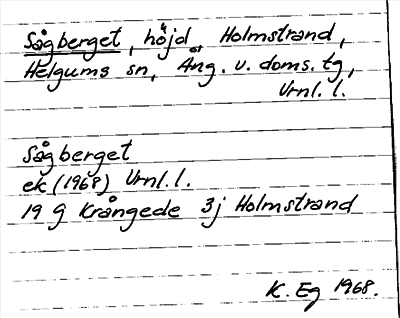 Sågberget, höjd, Holmstrand,
Helgums sn, Ång. v. doms. tg,
Vrnl. l.
Sågberget
ek (1968) Vrnl. l.
19 G Krångede 3j Holmstrand
K. Eg 1968.